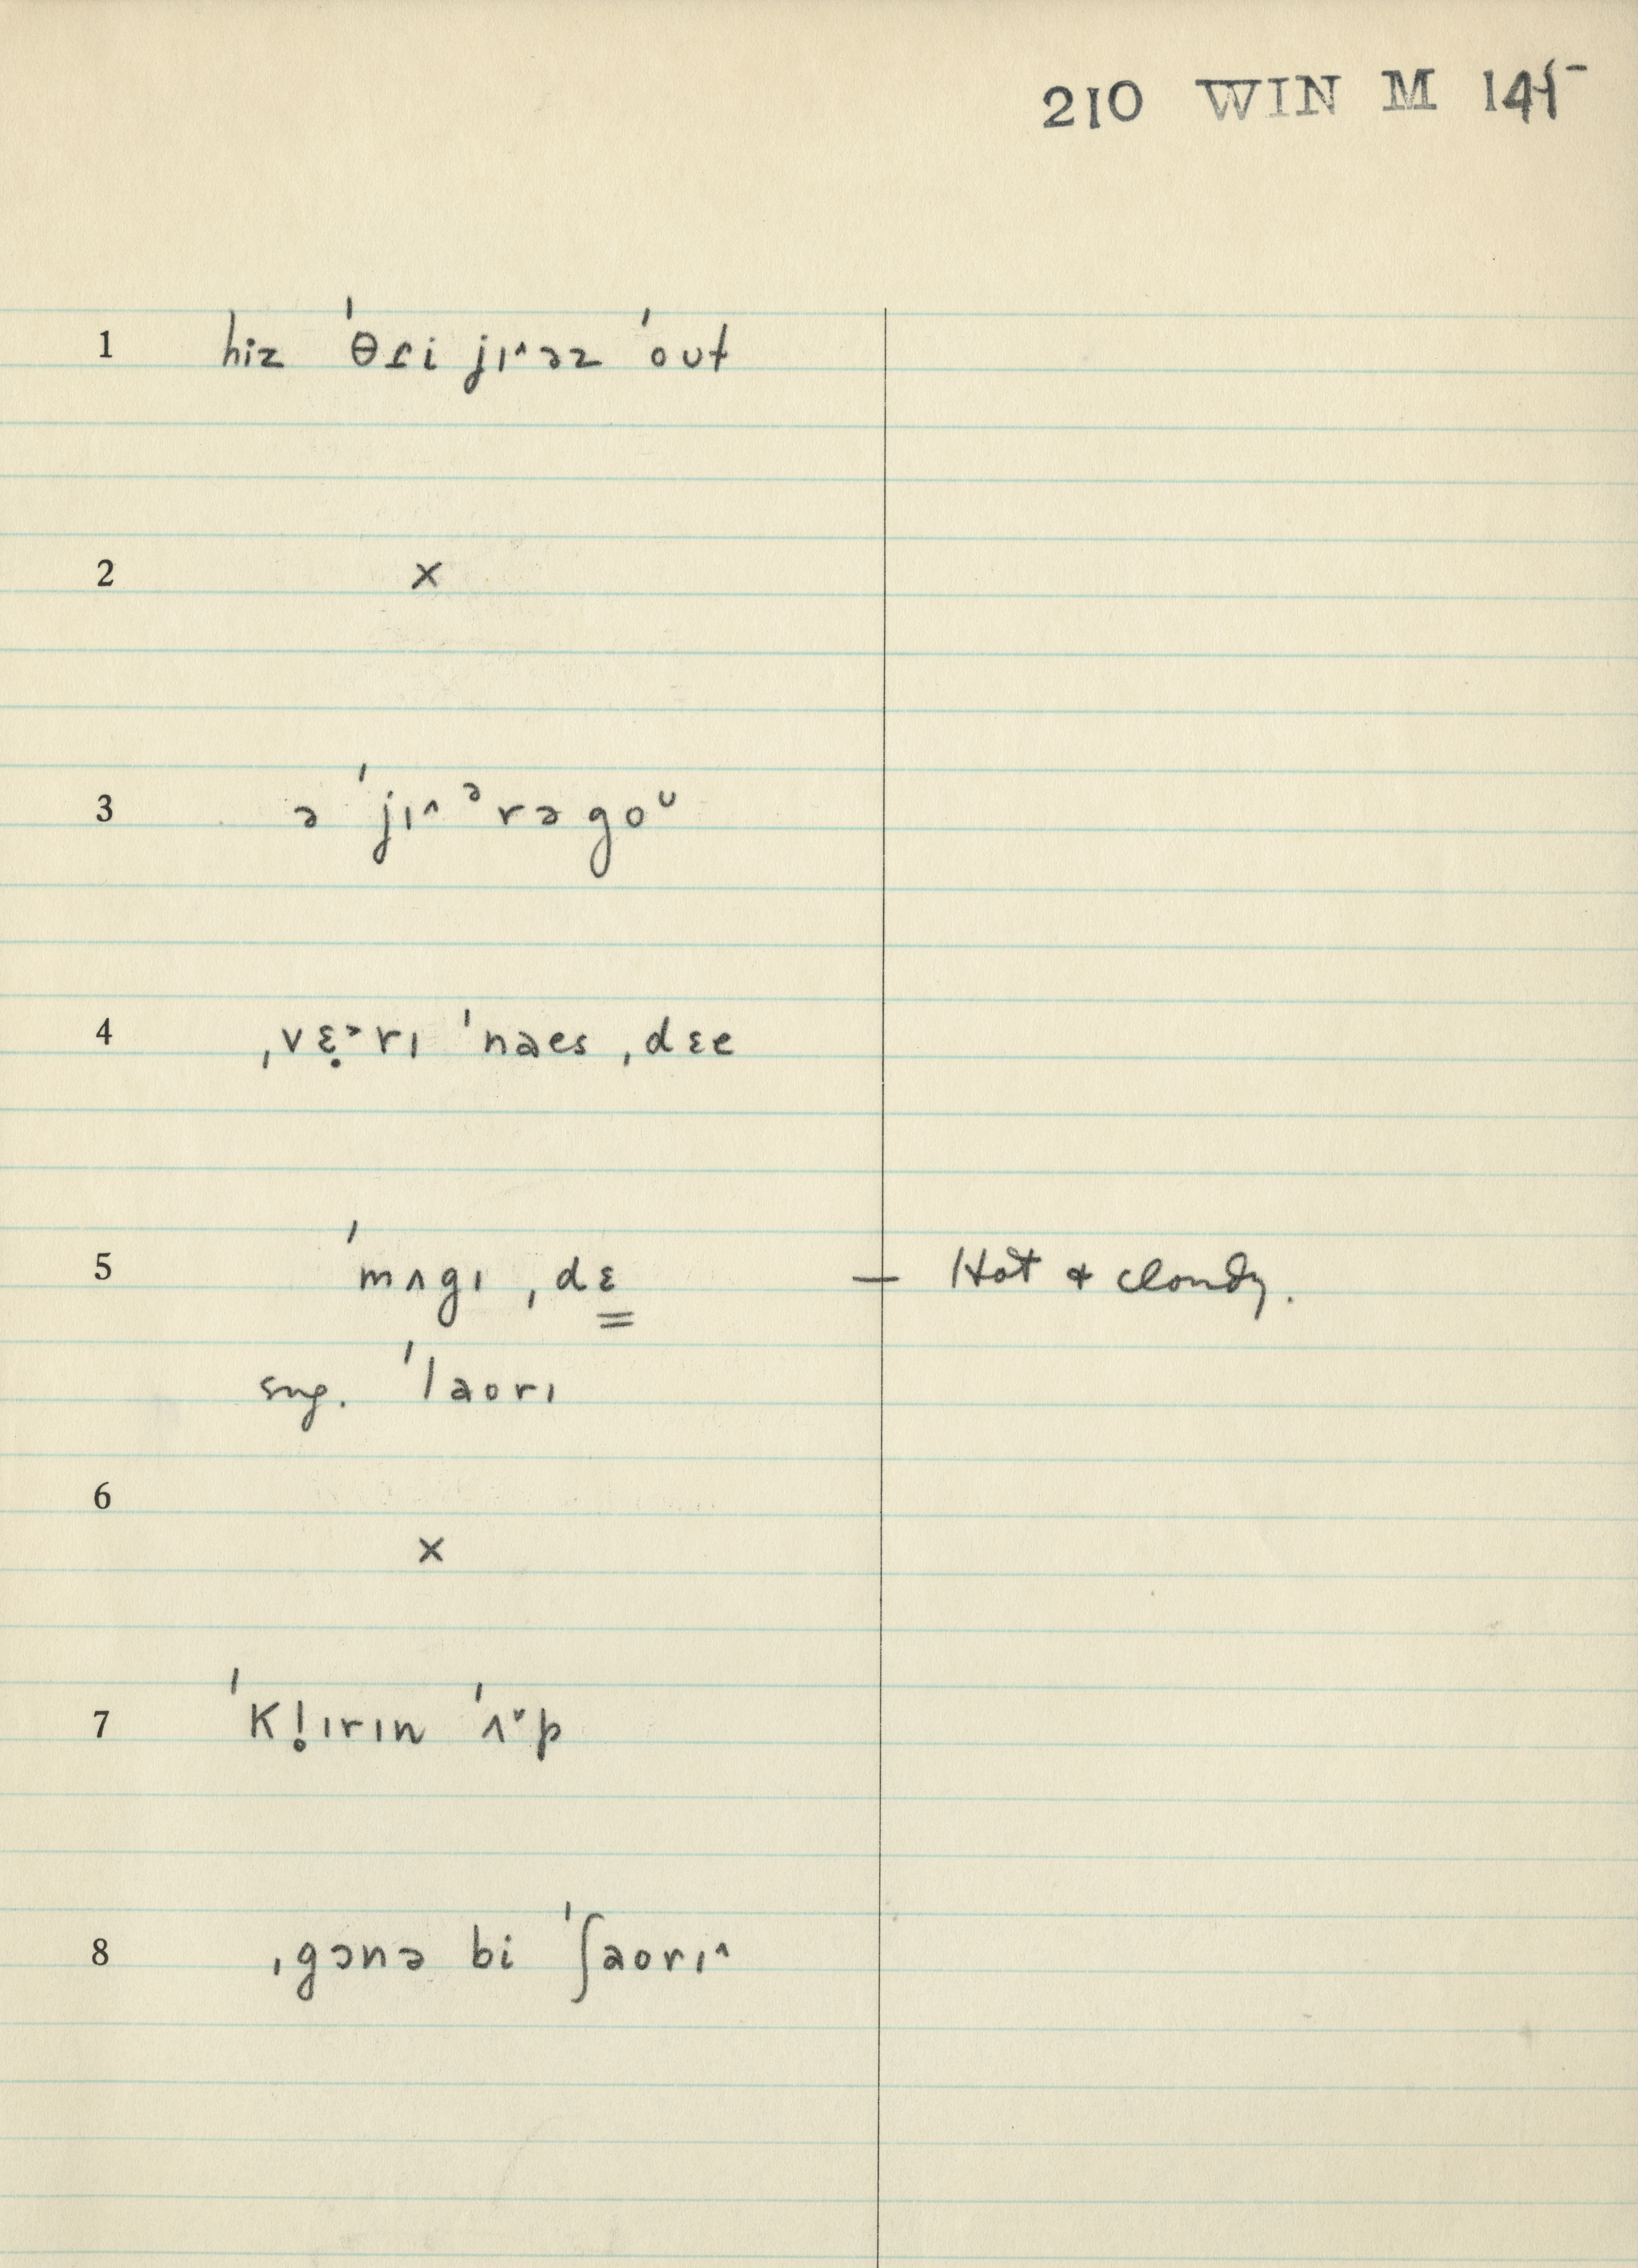 210 WIN M 145
1 hiz ˈθɾi jɪ^əz ˈout
2 ×
3 ə ˈjɪ^ᵊrəgoᵁ
4 ˌvɛ̣ᵊrɪ ˈnaes ˌdɛe
5 ˈmʌgɪ ˌdɛ̳ — Hot & cloudy.
sug. ˈlaorɪ
6
×
7 ˈkl̥ɪrɪn ˈʌᵛp
8 ˌgɔnə bi ˈʃaorɪ^